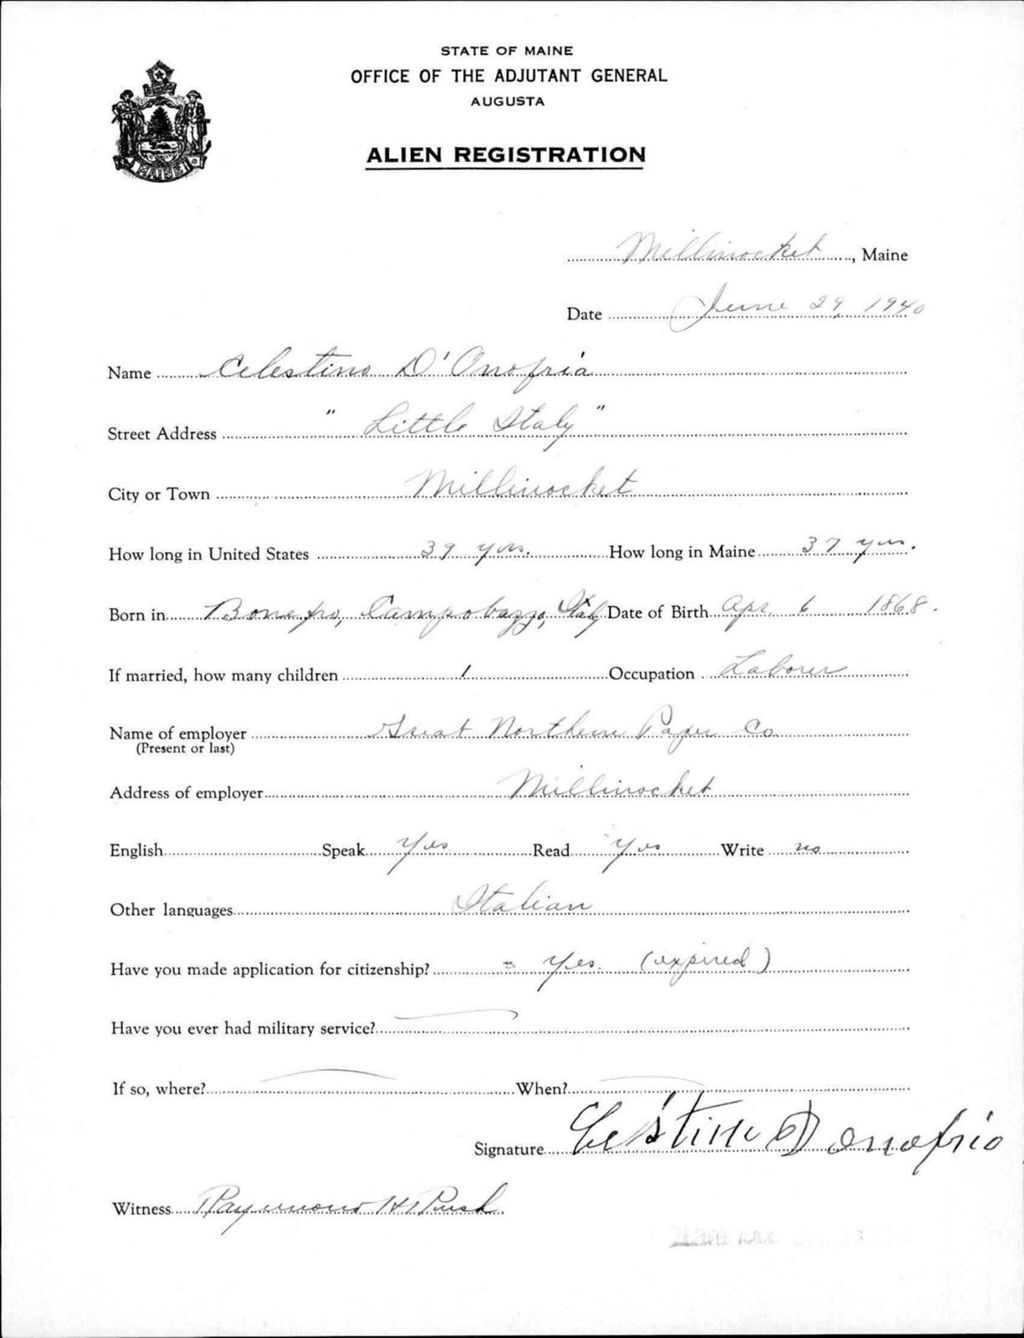 STATE OF MAINE
OFFICE OF THE ADJUTANT GENERAL
AUGUSTA
ALIEN REGISTRATION
MAINE
Millinocket, Maine
Date June 29, 1940
Name Celestino D'Onofria
Street Address "Little Italy"
City or Town Millinocket
How long in United States 39 yrs. How long in Maine 37 yrs.
Born in Bonefro, Campobazzo, Italy Date of Birth Apr. 6 1868.
If married, how many children 1 Occupation Laborer
Name of employer Great Northern Paper Co.
(Present or last)
Address of employer Millinocket
English Speak Yes Read Yes Write no
Other languages Italian
Have you made application for citizenship? - Yes. (expired)
Have you ever had military service?
If so, where? When?
Signature Celestino D Onofrio
Witness Raymond H